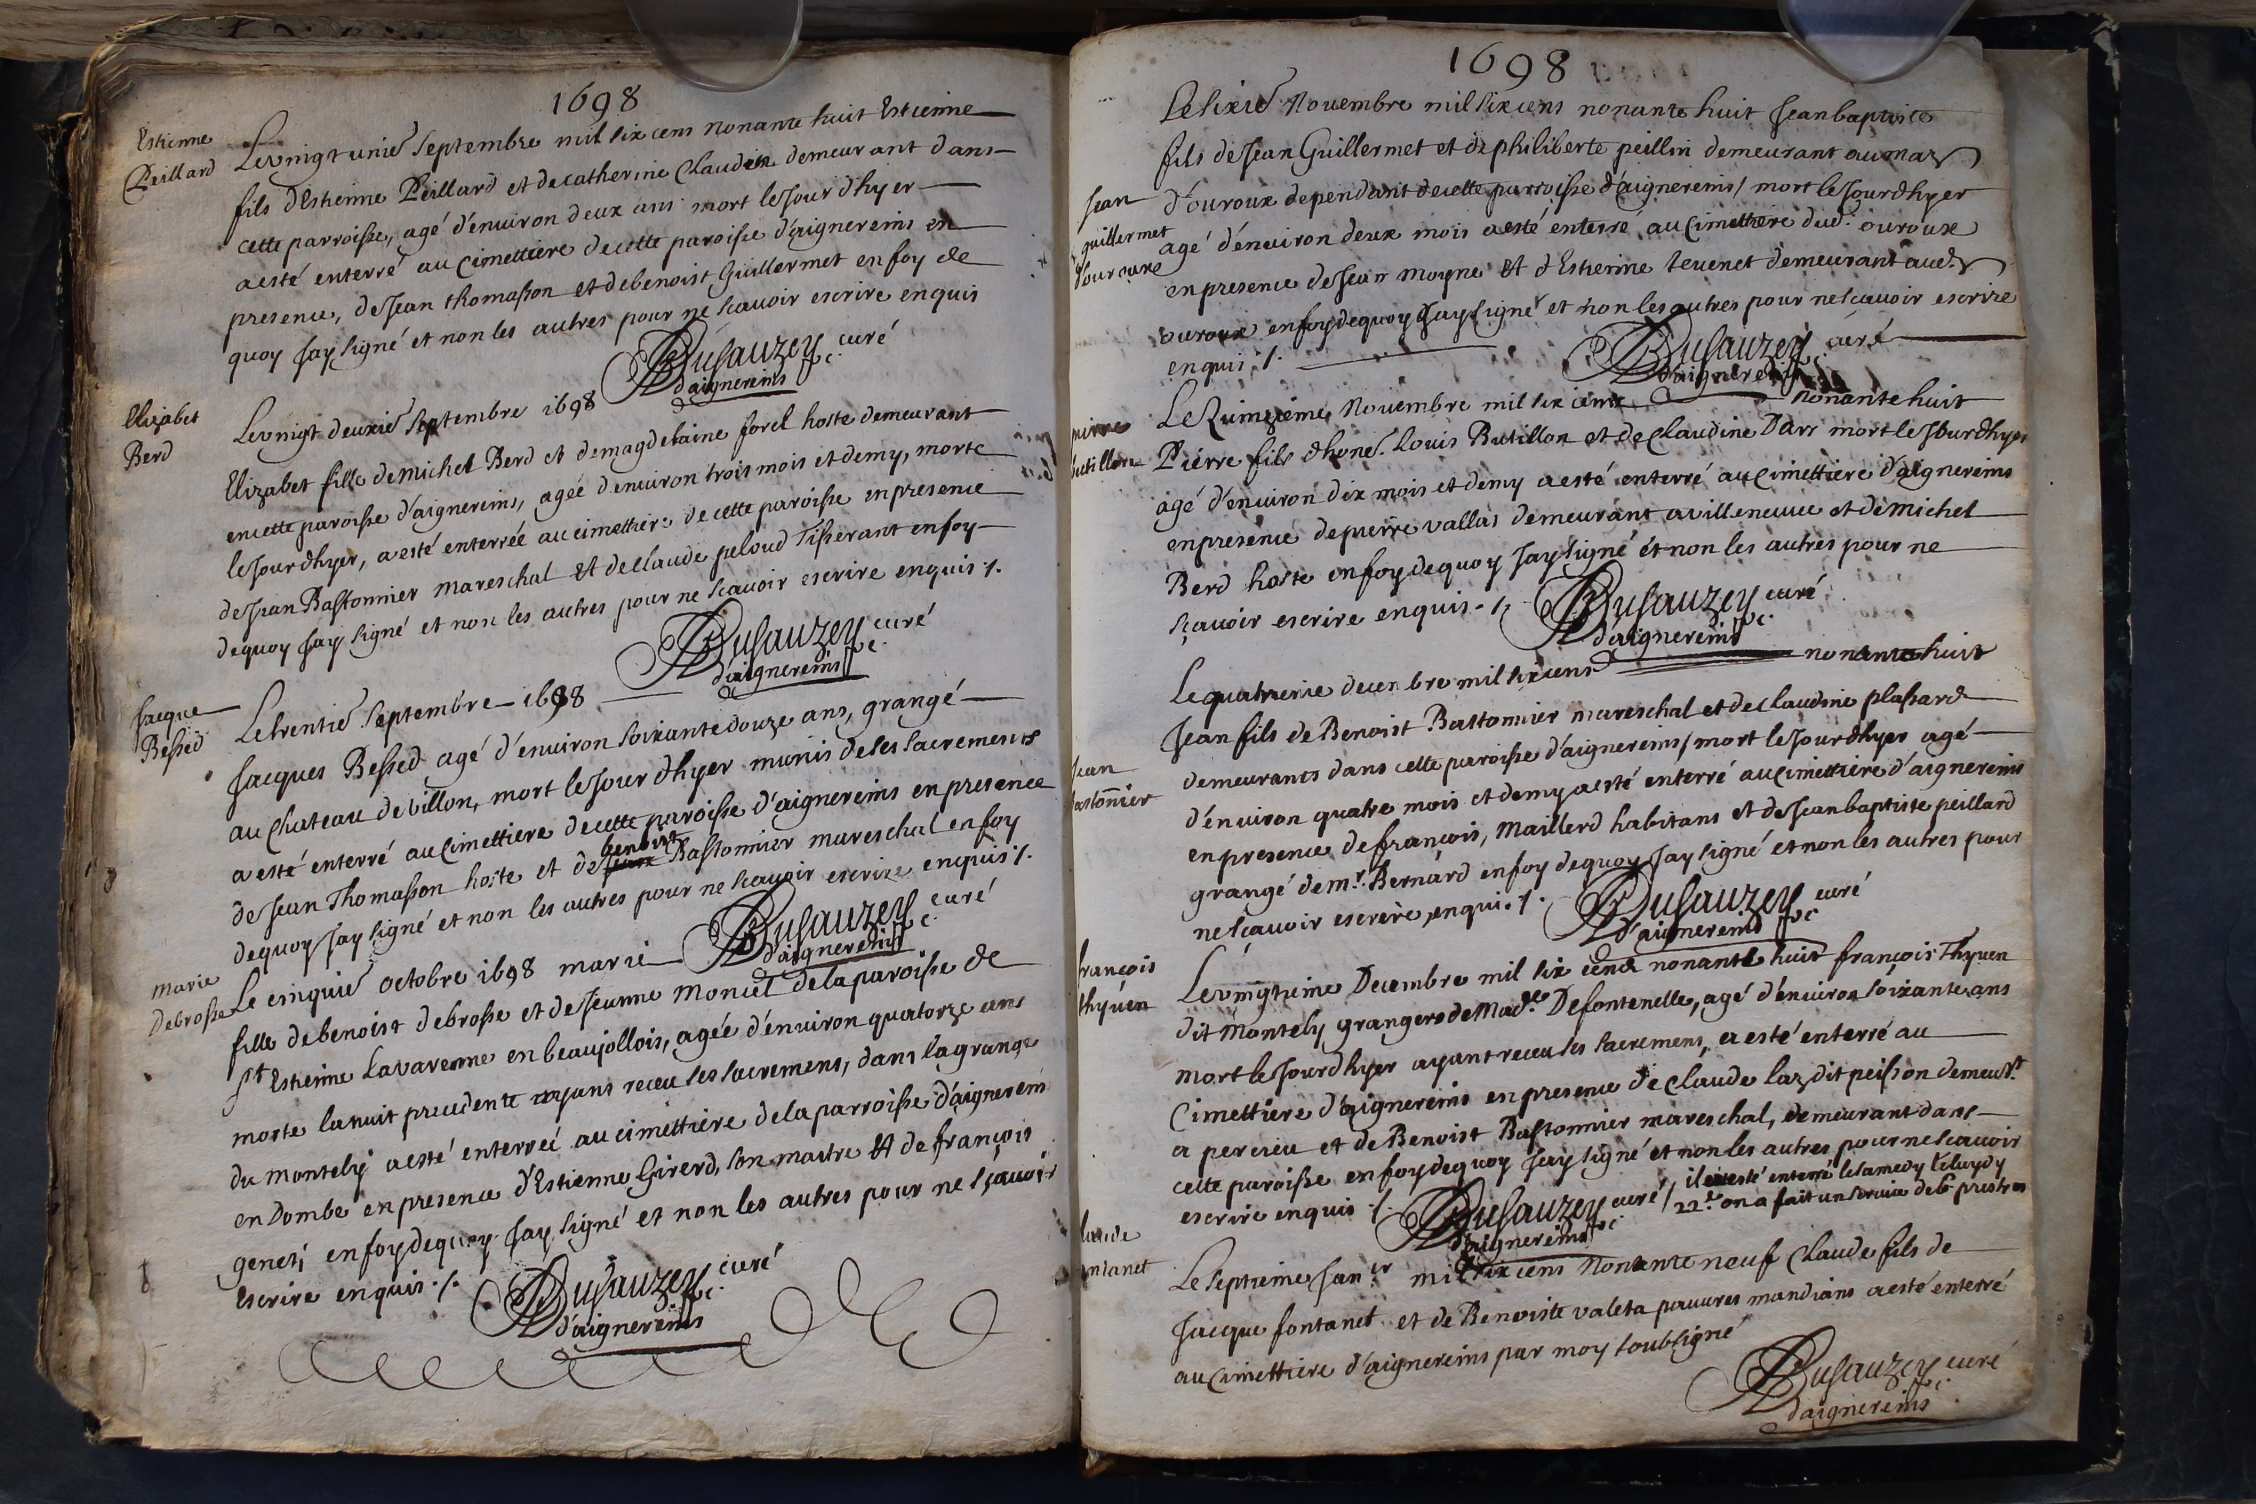 1698
Estienne
Peillard
Le vingt unie Septembre mil six cens nonante huit Estienne
fils d'Estienne Peillard et de catherine Claudin demeurant dans
cette parroisse, agé d'enuiron deux ans mort le Jour d'hyer
a esté enterré au Cimettiere de cette paroisse d'aignereins en
presence, de Jean thomasson et de benoist Guillermet en foy de
quoy Jay signé et non les autres pour ne scauoir escrire enquis
BDusauzey curé
d'aignereins
Elizabet
Berd
Le vnigt deuxie Septembre 1698
Elizabet fille de Michel Berd et de magdelaine forel hoste demeurant
en cette paroisse d'aignereins, agée d'enuiron trois mois et demy, morte
le Jour d'hyer, a esté enterrée au cimettiere de cette paroisse en presence
de Jean Bastonnier mareschal et de Claude peloud Tisserant en foy
de quoy Jay signé et non les autres pour ne scauoir escrire enquis ./.
BDusauzey curé
d'aignereins
Jacque
Bessed
Le trentie Septembre 1698
Jacques Bessed agé d'enuiron soixante douze ans, grangé
au Chateau de villon, mort le Jour d'hyer munis de ses sacrements
a esté enterré au Cimettiere de cette paroisse d'aignereins en presence
benoist
de Jean Thomasson hoste et de Jean Bastonnier mareschal en foy
de quoy Jay signé et non les autres pour ne scauoir escrire enquis ./.
BDusauzey curé
d'aignereins
marie
Debrosse
Le cinquie octobre 1698 marie
fille de benoist debrosse et de Jeanne Moncel de la paroisse de
st Estienne Lavarenne en beaujollois, agée d'enuiron quatorze ans
morte la nuit precedente ayans receu ses sacremens, dans la grange
du montely a esté enterreé au cimettiere de la parroisse d'aignereins
en Dombe en presence d'Estienne Girerd, son maitre et de françois
geneti en foy de quoy Jay signé et non les autres pour ne sçauoir
escrire enquis ./.
BDusauzey curé
d'aignereins
1698
Le sixie Nouembre mil six cens nonante huit Jean baptiste
fils de Jean Guillermet et de philiberte peillin demeurant au mas
Jean
guillermet
d'ouroux dependant de cette parroisse d'aignereins / mort le Jour d'hyer
agé d'enuiron deux mois a esté enterré au Cimettiere dud. ouroux
en presence de Jean moyne et d'Estienne teuenet demeurant aud.
ouroux en foy de quoy Jay signé et non les autres pour ne scauoir escrire
enquis ./.
BDusauzey curé
d'aignereins
pierre
butillon
Le Quinzieme Nouembre mil six cens nonante huit
Pierre fils d'hone. Louis Butillon et de Claudine Darr mort le Jour d'hyer
agé d'enuiron dix mois et demy a esté enterré au Cimettiere d'aignereins
en presence de pierre vallas demeurant a villeneuue et de Michel
Berd hoste en foy de quoy Jay signé et non les autres pour ne
sçauoir escrire enquis ./.
BDusauzey curé
d'aignereins
Le quatrieme decembre mil six cens nonante huit
Jean fils de Benoist Bastonnier mareschal et de Claudine plassard
Jean
bastonnier
demeurants dans cette paroisse d'aignereins / mort le Jour d'hyer agé
d'énuiron quatre mois et demy a esté enterré au Cimettiere d'aignereins
en presence de françois, Maillerd habitans et de Jean baptiste peillard
grangé de mr. Bernard en foy de quoy Jay signé et non les autres pour
ne sçauoir escrire, enquis ./.
BDusauzey curé
d'aignereins
françois
thyuen
Le vingtieme Decembre mil six cens nonante huit françois Thyuen
dit Montely grangere de Made. Defontenelle, agé d'enuiron soixante ans
mort le Jour d'hyer ayant receu ses sacremens, a esté enterré au
Cimettiere d'aignereins en presence de Claude laz dit peisson demeurt.
a percieu et de Benoist Bastonnier mareschal, demeurant dans
cette paroisse en foy de quoy Jay signé et non les autres pour ne scauoir
escrire enquis ./.
BDusauzey curé
d'aignereins
il a esté enterré le samedy
22e on a fait un seruice de 6 prestres
Claude
fontanet
Le septieme Janer mil six cens Nonante neuf Claude fils de
Jacque fontanet et de Benoiste valeta pauures mandians a esté enterré
au Cimettiere d'aignereins par moy soubsigné
BDusauzey curé
d'aignereins